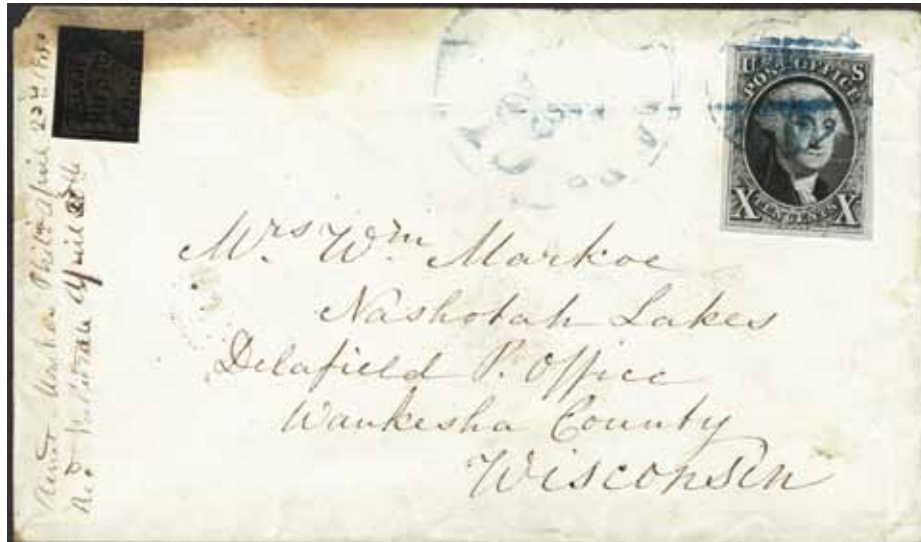 U S
POST OFFICE
X TEN CENTS X
Mrs Wm Markoe
Nashotah Lakes
Delafield P. Office
Waukesha County
Wisconsin
Aunt Phila April 22d 1850
April